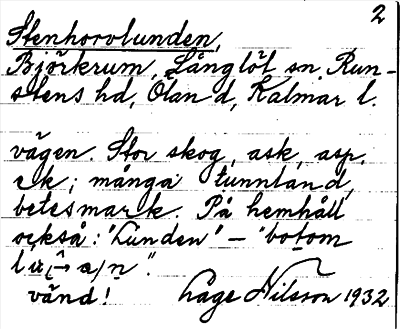 2
Stenhorvlunden,
Björkrum, Långlöt sn, Run-
stens hd, Öland, Kalmar l.
vägen. Stor skog, ask, asp,
ek; många tunnland,
betesmark. På hemhåll
också: "Lunden" – "botom
vänd! Åge Nilsson 1932